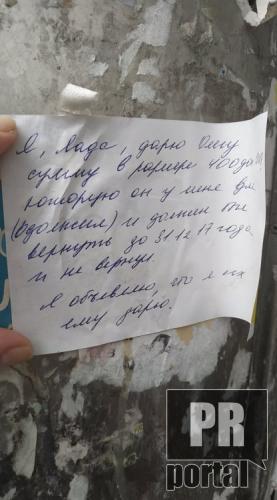 Я, Лада, дарю Олегу
сумму в размере 400 дол
которую он у меня взял
(одолжил) и должен был
вернуть до 31.12.17 года
и не вернул.
Я объявляю, что я их
ему дарю.
PR
portal